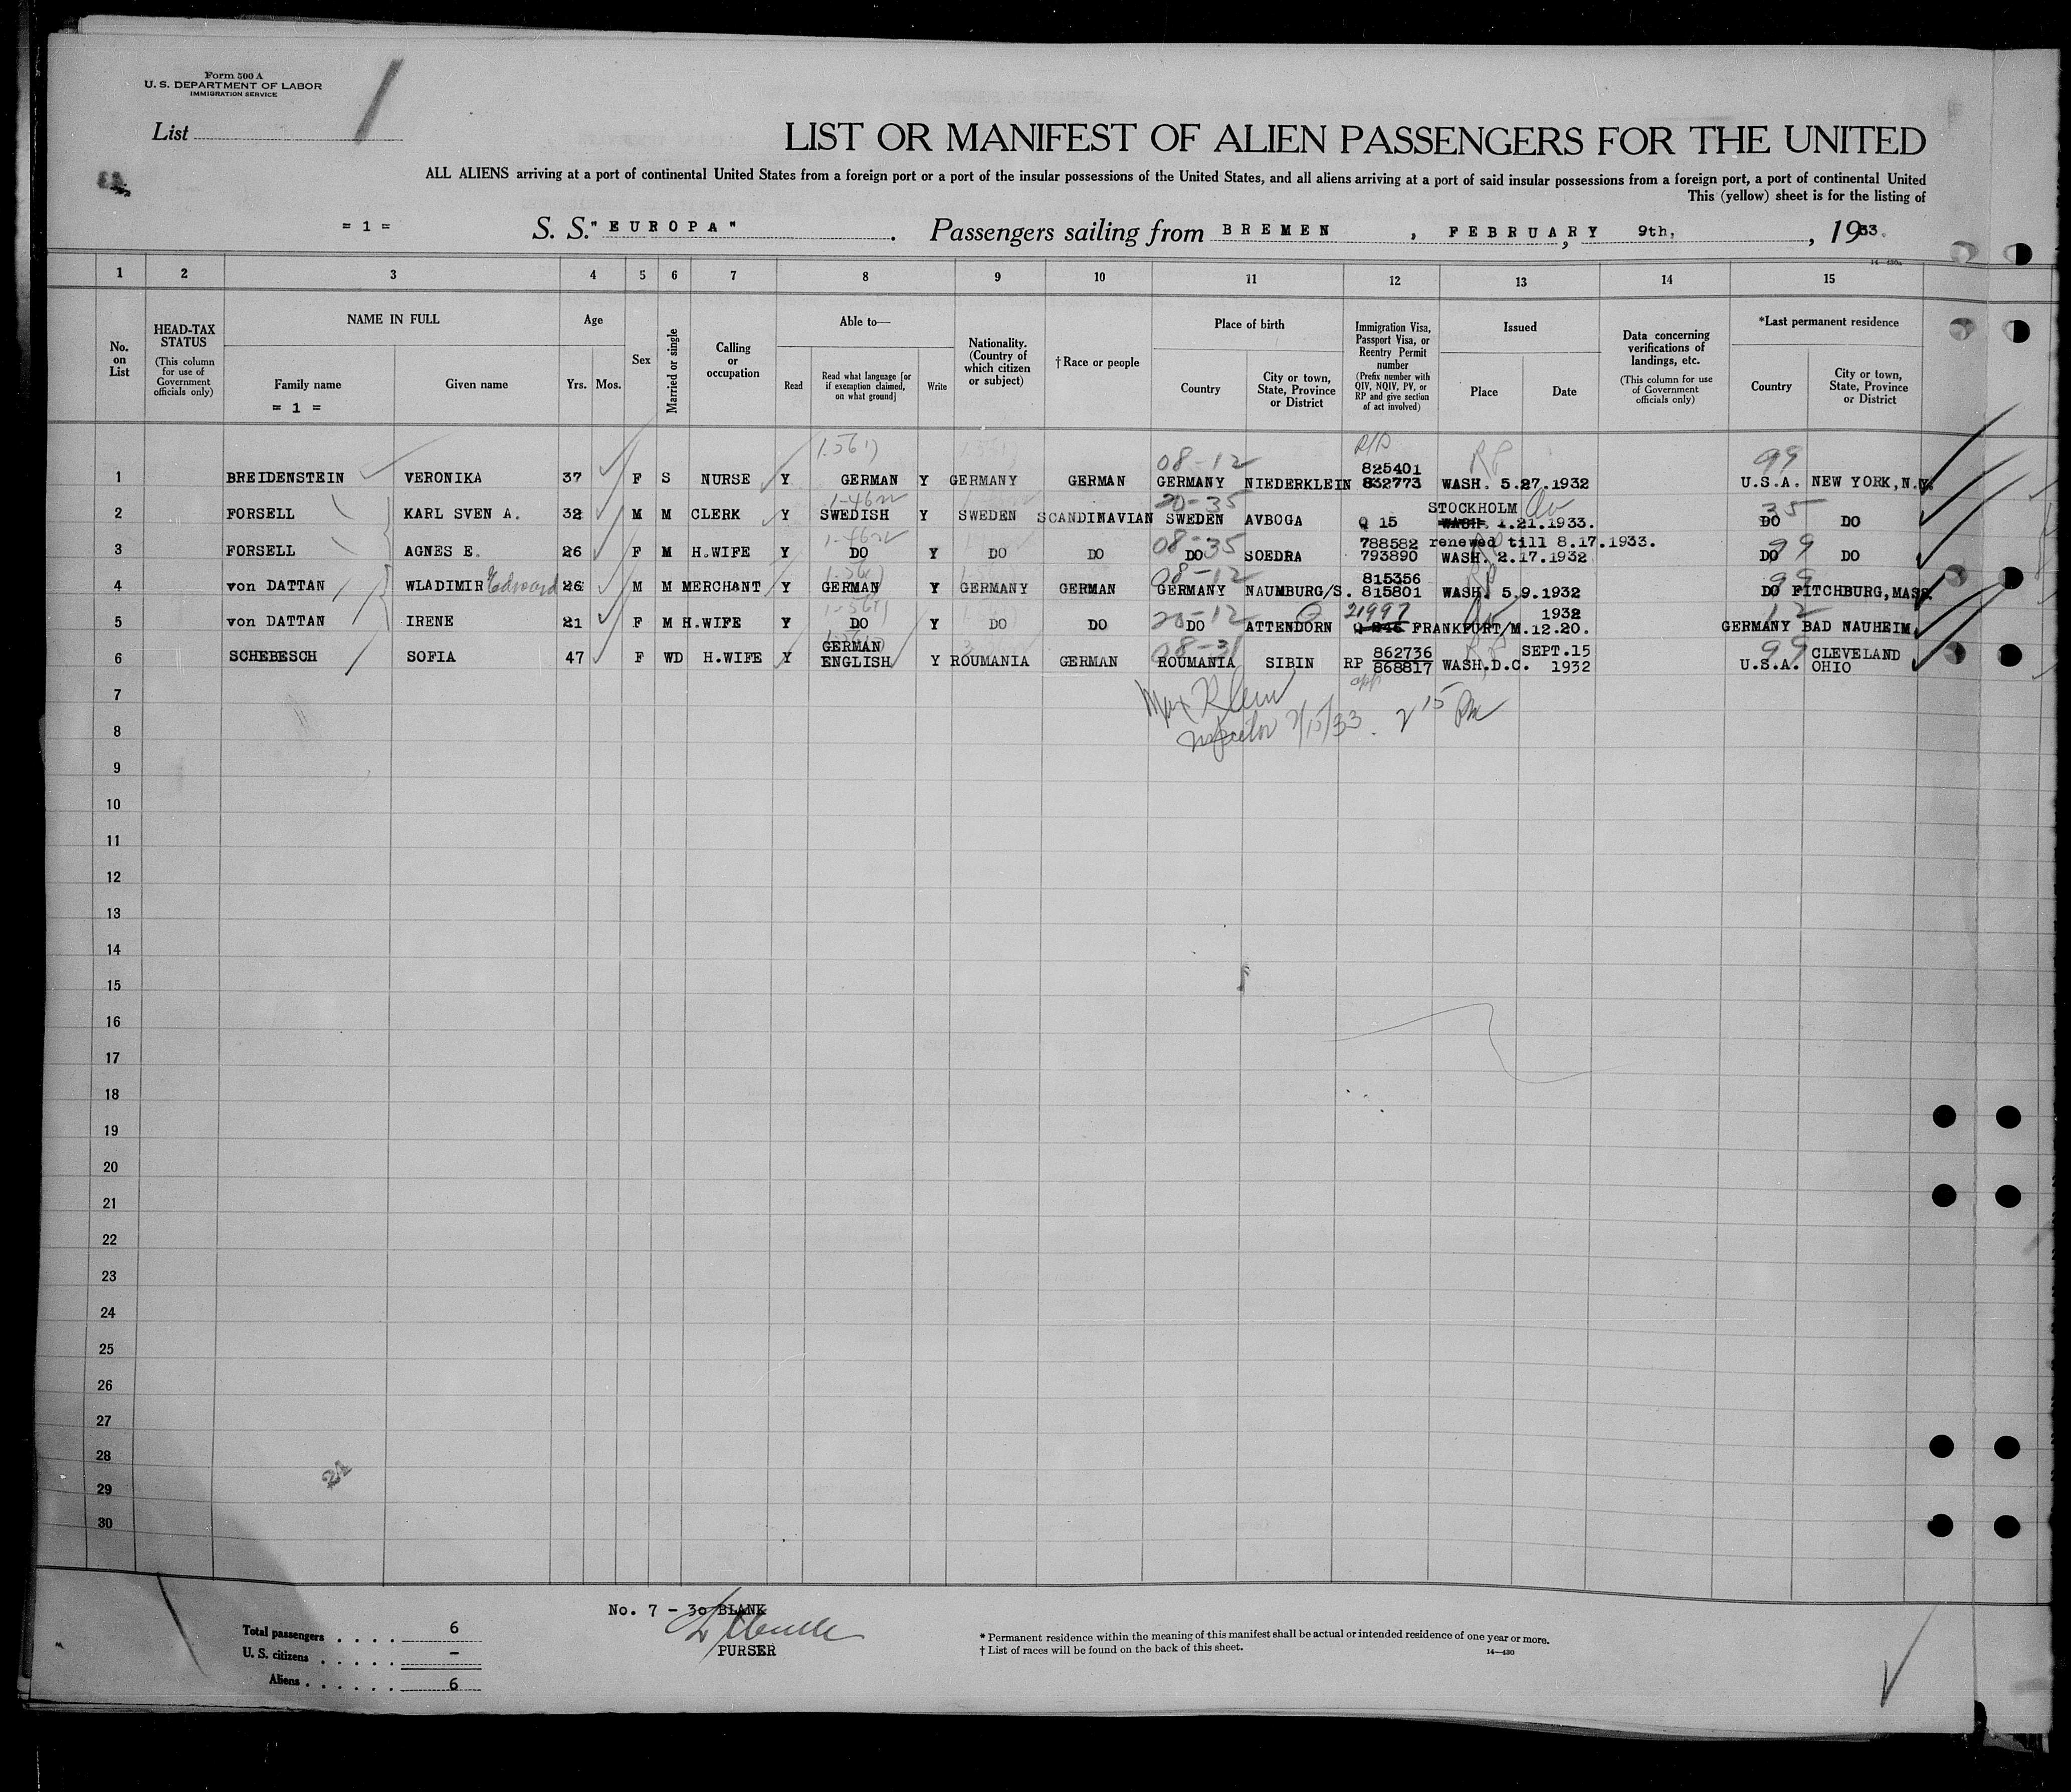 Form 500 A
U. S. DEPARTMENT OF LABOR
IMMIGRATION SERVICE
List 1
LIST OR MANIFEST OF ALIEN PASSENGERS FOR THE UNITED
ALL ALIENS arriving at a port of continental United States from a foreign port or a port of the insular possessions of the United States, and all aliens arriving at a port of said insular possessions from a foreign port, a port of continental United
This (yellow) sheet is for the listing of
= 1 = S. S. "EUROPA" . Passengers sailing from BREMEN , FEBRUARY 9th, , 1933.
14—430a
1 2 3 4 5 6 7 8 9 10 11 12 13 14 15
No. on List
HEAD-TAX STATUS (This column for use of Government officials only)
NAME IN FULL
Family name
= 1 =
Given name
Age
Yrs. Mos.
Sex
Married or single
Calling or occupation
Able to—
Read
Read what language [or if exemption claimed, on what ground]
Write
Nationality. (Country of which citizen or subject)
†Race or people
Place of birth
Country
City or town, State, Province or District
Immigration Visa, Passport Visa, or Reentry Permit number (Prefix number with QIV, NQIV, PV, or RP and give section of act involved)
Issued
Place
Date
Data concerning verifications of landings, etc. (This column for use of Government officials only)
*Last permanent residence
Country
City or town, State, Province or District
1 BREIDENSTEIN VERONIKA 37 F S NURSE Y GERMAN Y GERMANY GERMAN 08-12 GERMANY NIEDERKLEIN 825401 832773 RP WASH. 5.27.1932 99 U.S.A. NEW YORK, N.Y.
2 FORSELL KARL SVEN A. 32 M M CLERK Y SWEDISH Y SWEDEN SCANDINAVIAN 20-35 SWEDEN AVBOGA Q 15 STOCKHOLM WASH. 1.21.1933. 35 DO DO
3 FORSELL AGNES E. 26 F M H.WIFE Y DO Y DO DO 08-35 DO SOEDRA 788582 renewed till 8.17.1933. 793890 WASH. 2.17.1932 99 DO DO
4 von DATTAN WLADIMIR Edward 26 M M MERCHANT Y GERMAN Y GERMANY GERMAN 08-12 GERMANY NAUMBURG/S. 815356 815801 RP WASH. 5.9.1932 99 DO FITCHBURG, MASS.
5 von DATTAN IRENE 21 F M H.WIFE Y DO Y DO DO 20-12 DO ATTENDORN Q 21997 FRANKFURT/M. 12.20. 1932 12 GERMANY BAD NAUHEIM
6 SCHEBESCH SOFIA 47 F WD H.WIFE Y GERMAN ENGLISH Y ROUMANIA GERMAN 08-31 ROUMANIA SIBIN RP 862736 868817 RP WASH.D.C. SEPT.15 1932 99 U.S.A. CLEVELAND OHIO
7
Max Klein
8
Inspector 2/15/33. 2 15 PM
9
10
11
12
13
14
15
16
17
18
19
20
21
22
23
24
25
26
27
28
29
30
24
No. 7 - 30 BLANK
PURSER
Total passengers . . . . 6
U. S. citizens . . . . . –
Aliens . . . . . . 6
* Permanent residence within the meaning of this manifest shall be actual or intended residence of one year or more.
† List of races will be found on the back of this sheet.
14—430